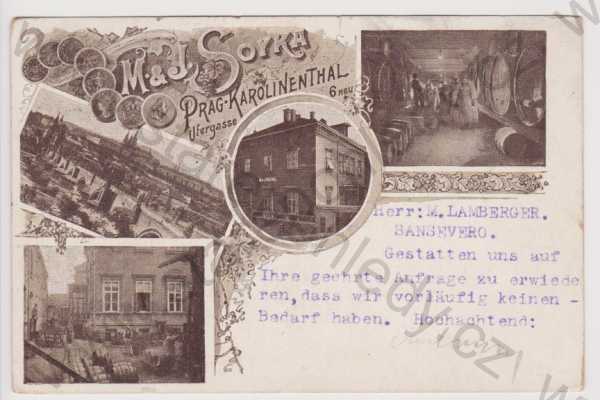 M & J. SOYKA
PRAG-KAROLINENTHAL
Ufergasse 6 neu
Herr: M. LAMBERGER.
SANSEVERO.
Gestatten uns auf
Ihre geehrte Anfrage zu erwiede
ren, dass wir vorläufig keinen -
Bedarf haben. Hochachtend: